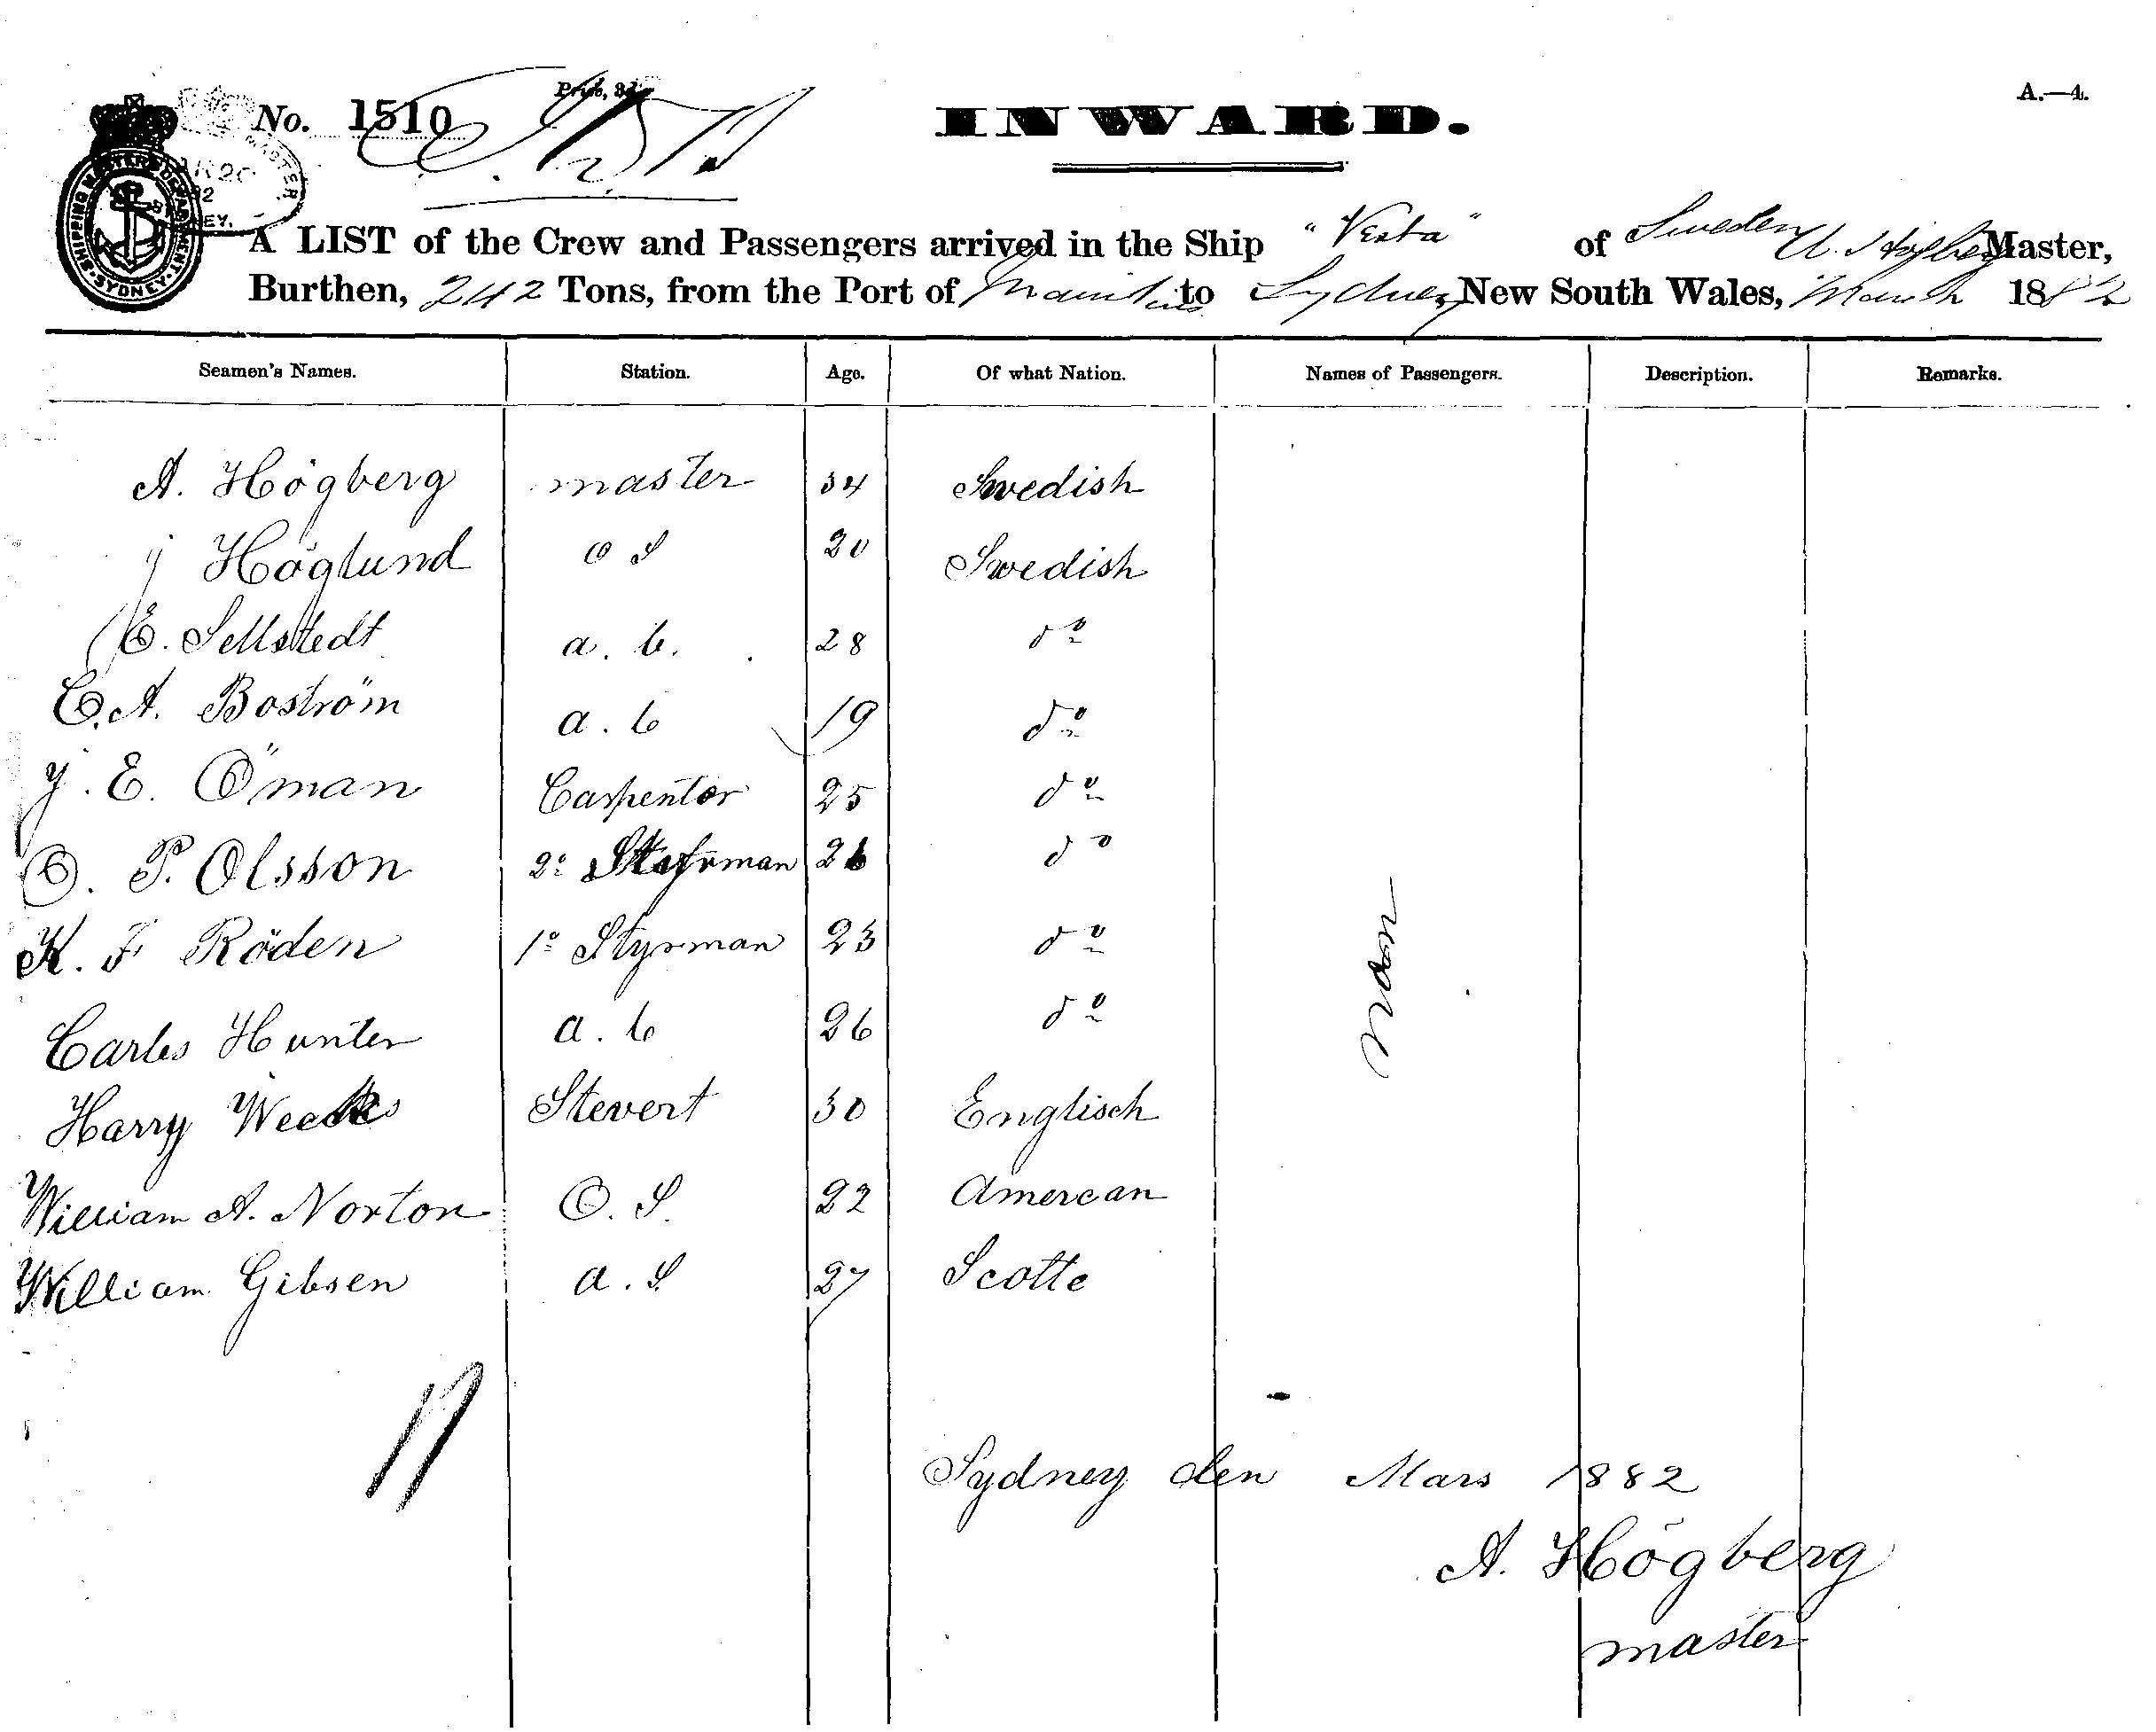 No. 1510
Price, 3d.
INWARD.
A.—4.
SHIPPING MASTER'S DEPARTMENT SYDNEY
A LIST of the Crew and Passengers arrived in the Ship "Vesta" of Sweden A. Högberg Master,
Burthen, 242 Tons, from the Port of Mauritius to Sydney New South Wales, March 1882
Seamen's Names. Station. Age. Of what Nation. Names of Passengers. Description. Remarks.
A. Högberg master 34 Swedish
J Höglund O S 20 Swedish
E. Sellstedt a. b. 28 do
C. A. Boström a. b 19 do
J. E. Öman Carpenter 25 do
O. P. Olsson 2: Styrman 26 do
K. F Röden 1o Styrman 23 do
Carles Hunter a. b 26 do
Harry Weeks Stevert 30 Englisch
William A. Norton O. S. 22 Amerecan
William Gibsen a. S 27 Scotte
noon
11
Sydney den Mars 1882
A. Högberg
master